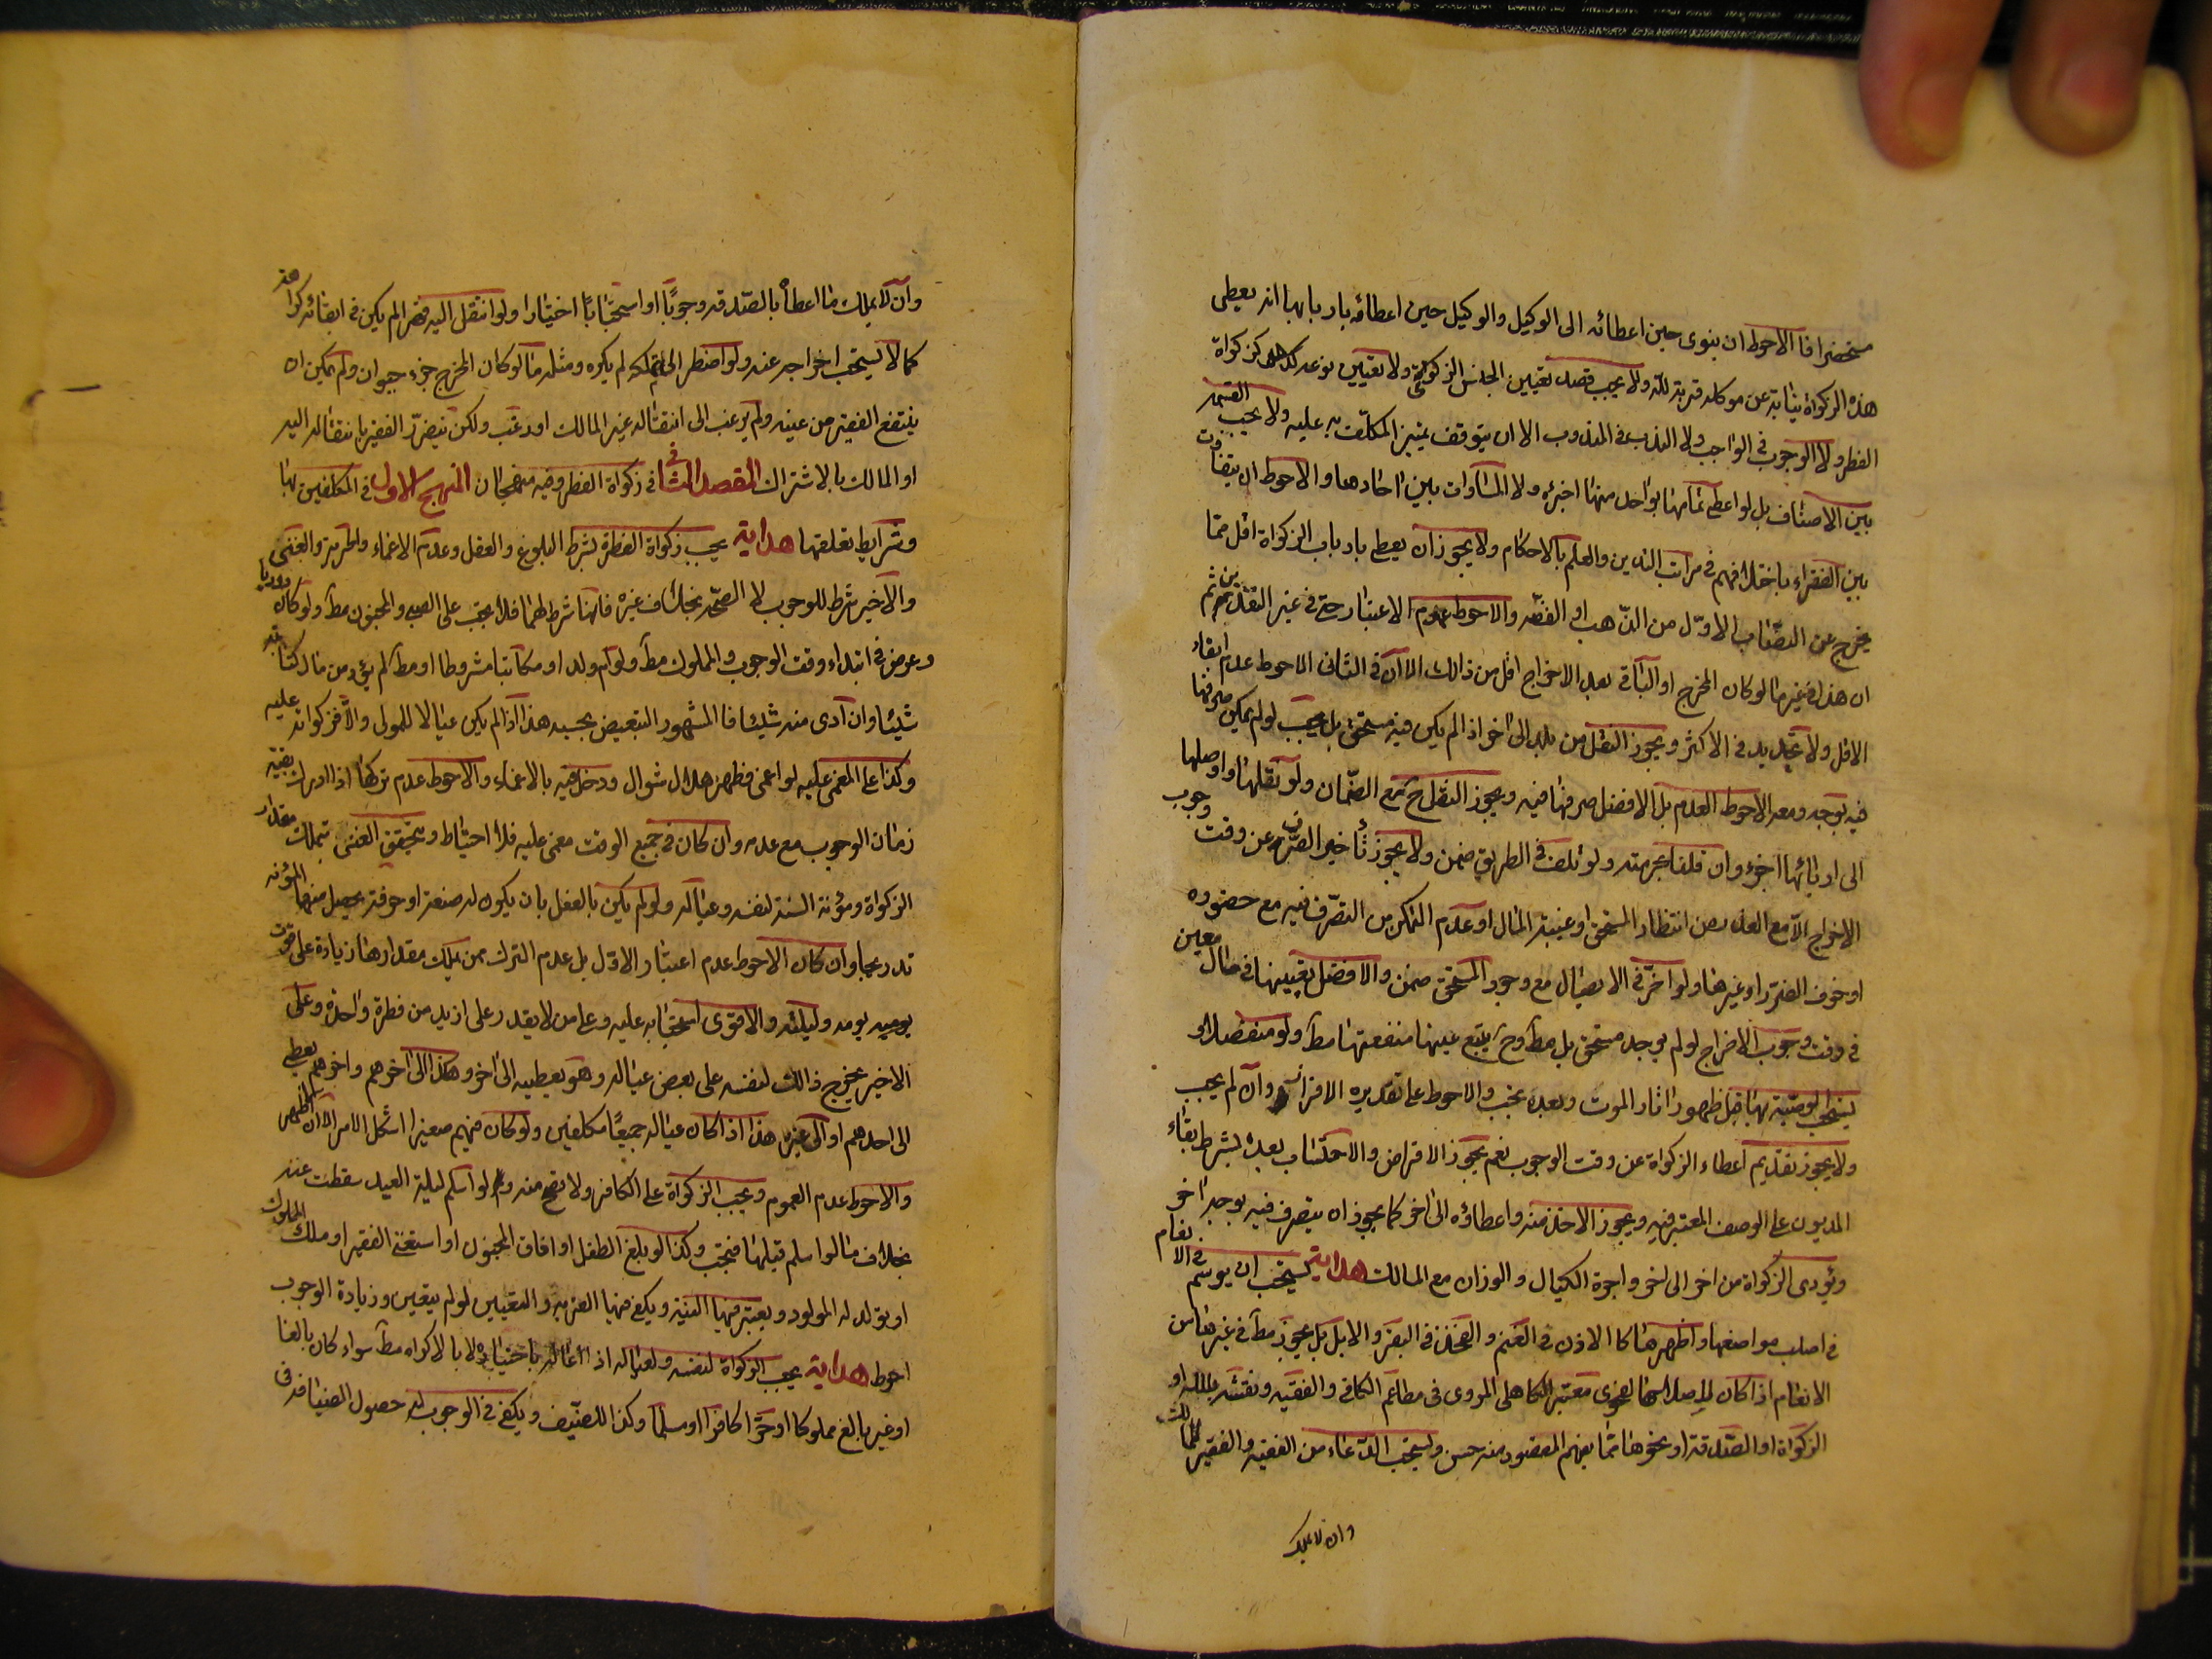 مستحضرا فالاحوط ان ينوى حين اعطائه الى الوكيل والوكيل حين اعطائه باربابها انه يعطى
هذه الزكواة نيابة عن موكله قربة لله ولا يجب قصد تعيين الجنس الزكوتى ولا تعيين نوعه كزكواة
الفطر ولا الوجوب فى الواجب ولا الندب فى المندوب الا ان يتوقف تميز المكلف به عليه ولا يجب القسمة
بين الاصناف بل لو اعطى تمامها بواحد منها اجزئه ولا المساوات بين احادها والاحوط ان يتفاوت
بين الفقراء باختلافهم فى مراتب الدين والعلم بالاحكام ولا يجوز ان يعطى بارباب الزكواة اقل مما
يخرج عن النصاب الاول من الذهب او الفضه والاحوط عدم الاعتبار حتى فى غير النقدين ثم
ان هذا فى غير ما لو كان المخرج او الباقى بعد الاخراج اقل من ذالك الا ان فى الثانى الاحوط عدم ابقاء
الاقل ولا تحديد فى الاكثر ويجوز النقل من بلد الى اخر اذا لم يكن فيه مستحق بل يجب لو لم يمكن صرفها
فيه بوجه ومعه الاحوط العدم بل الافضل صرفها فيه ويجوز النقل ح مع الضمان ولو نقلها واوصلها
الى اربابها اجزء وان قلنا بحرمته ولو تلف فى الطريق ضمن ولا يجوز تأخير الصرف عن وقت وجوب
الاخراج الا مع العذر من انتظار المستحق او غيبة المال او عدم التمكن من التصرف فيه مع حضوره
او خوف الضرر او غيرها ولو اخر فى الايصال مع وجود المستحق ضمن والافضل تعيينها فى مال معين
فى وقت وجوب الاخراج لو لم يوجد مستحق بل مطآ وح يتبع عينها منفعتها مطآ ولو منفصلا و
يستحب الوصية بها قبل ظهور اثار الموت وبعده يجب والاحوط على تقديره الاقران وان لم يجب
ولا يجوز تقديم اعطاء الزكواة عن وقت الوجوب نعم يجوز الاقراض والاحتساب بعده بشرط بقاء
المديون على الوصف المعتبر فيه ويجوز الاخذ منه واعطاؤه الى اخر كما يجوز ان يتصرف فيه بوجه اخر
ويؤدى الزكواة من اخر الى اخر واجرة الكيال والوزان مع المالك هداية يستحب ان يوسم فى الانعام
فى اصلب مواضعها واظهرها كالاذن فى الغنم والفخذ فى البقر والابل بل يجوز مطآ فى غيرها من
الانعام اذا كان المروى فى مطاعم الكافى والفقيه ونقشه بلله او
الزكواة او الصدقة او نحوها مما يفهم المقصود منه حسن ويستحب الدعاء من الفقيه والفقير للمالك
وان لا يملك
وان لا يملك ما اعطاه بالصدقه وجوبًا او استحبابًا اختيارا ولو انتقل اليه قهرا لم يكن فى ابقائه كراهة
كما لا يستحب اخراجه عنه ولو اضطر الى تملكه لم يكره ومثله ما لو كان المخرج جزء حيوان ولم يمكن ان
ينتفع الفقير من عينه ولم يرغب الى انتقاله غير المالك او رغب ولكن يتضرر الفقير بانتقاله اليه
او المالك بالاشتراك المقصد الثانى فى زكواة الفطر وفيه منهجان المنهج الاول فى المكلفين بها
وشرايط تعلقها هداية يجب زكواة الفطرة بشرط البلوغ والعقل وعدم الاغماء والحرية والغنى
والاخير شرط للوجوب لا الصحة بخلاف غيره فانها شرط لهما فلا يجب على الصبى والمجنون مطآ ولو كان دوريا
وعرض فى ابتداء وقت الوجوب والمملوك مطآ ولو ام ولد او مكاتبا مشروطا او مطآ لم يؤد من مال كتابته
شيئا وان ادى منه شيئا فالمشهور التبعيض بحسبه هذا اذا لم يكن عيالا للمولى والا فزكواته عليه
وكذا على المغمى عليه لو اغمى فظهر هلال شوال ودخل فيه بالاغماء والاحوط عدم تركها اذا ادرك بقية
زمان الوجوب مع عدمه وان كان فى جميع الوقت مغمى عليه فلا احتياط ويتحقق الغنى بتملك مقدار
الزكواة ومؤنة السنة لنفسه وعياله ولو لم يكن بالفعل بان يكون له صنعة او حرفة يحصل منها المؤنه
تدريجا وان كان الاحوط عدم اعتبار الاول بل عدم الترك ممن يملك مقدارها زيادة على قوت
يوميه يومه وليلته والاقوى استحبابه عليه وعلى من لا يقدر على ازيد من فطرة واحدة وعلى
الاخير يخرج ذالك لنفسه على بعض عياله وهو يعطيه الى اخر وهكذا الى اخرهم واخرهم يعطى
الى احدهم او الى غيره هذا اذا كان عياله جميعًا مكلفين ولو كان فيهم صغيرا اشكل الامر الا ان الاظهر
والاحوط عدم العموم ويجب الزكواة على الكافر ولا تصح منه ولو اسلم ليلة العيد سقطت عنه
بخلاف ما لو اسلم قبلها فتجب وكذا لو بلغ الطفل او افاق المجنون او استغنى الفقير او ملك المملوك
او تولد له المولود ويعتبر فيها النية ويكفى فيها القربة والتعيين لو لم يتعين وزيادة الوجوب
احوط هداية يجب الزكواة لنفسه ولعياله اذا اعاله باختياره لا بالاكراه مطآ سواء كان بالغا
او غير بالغ مملوكا او حرّا كافرا او مسلما وكذا للضيف ويكفى فى الوجوب له حصول الضيافه فى